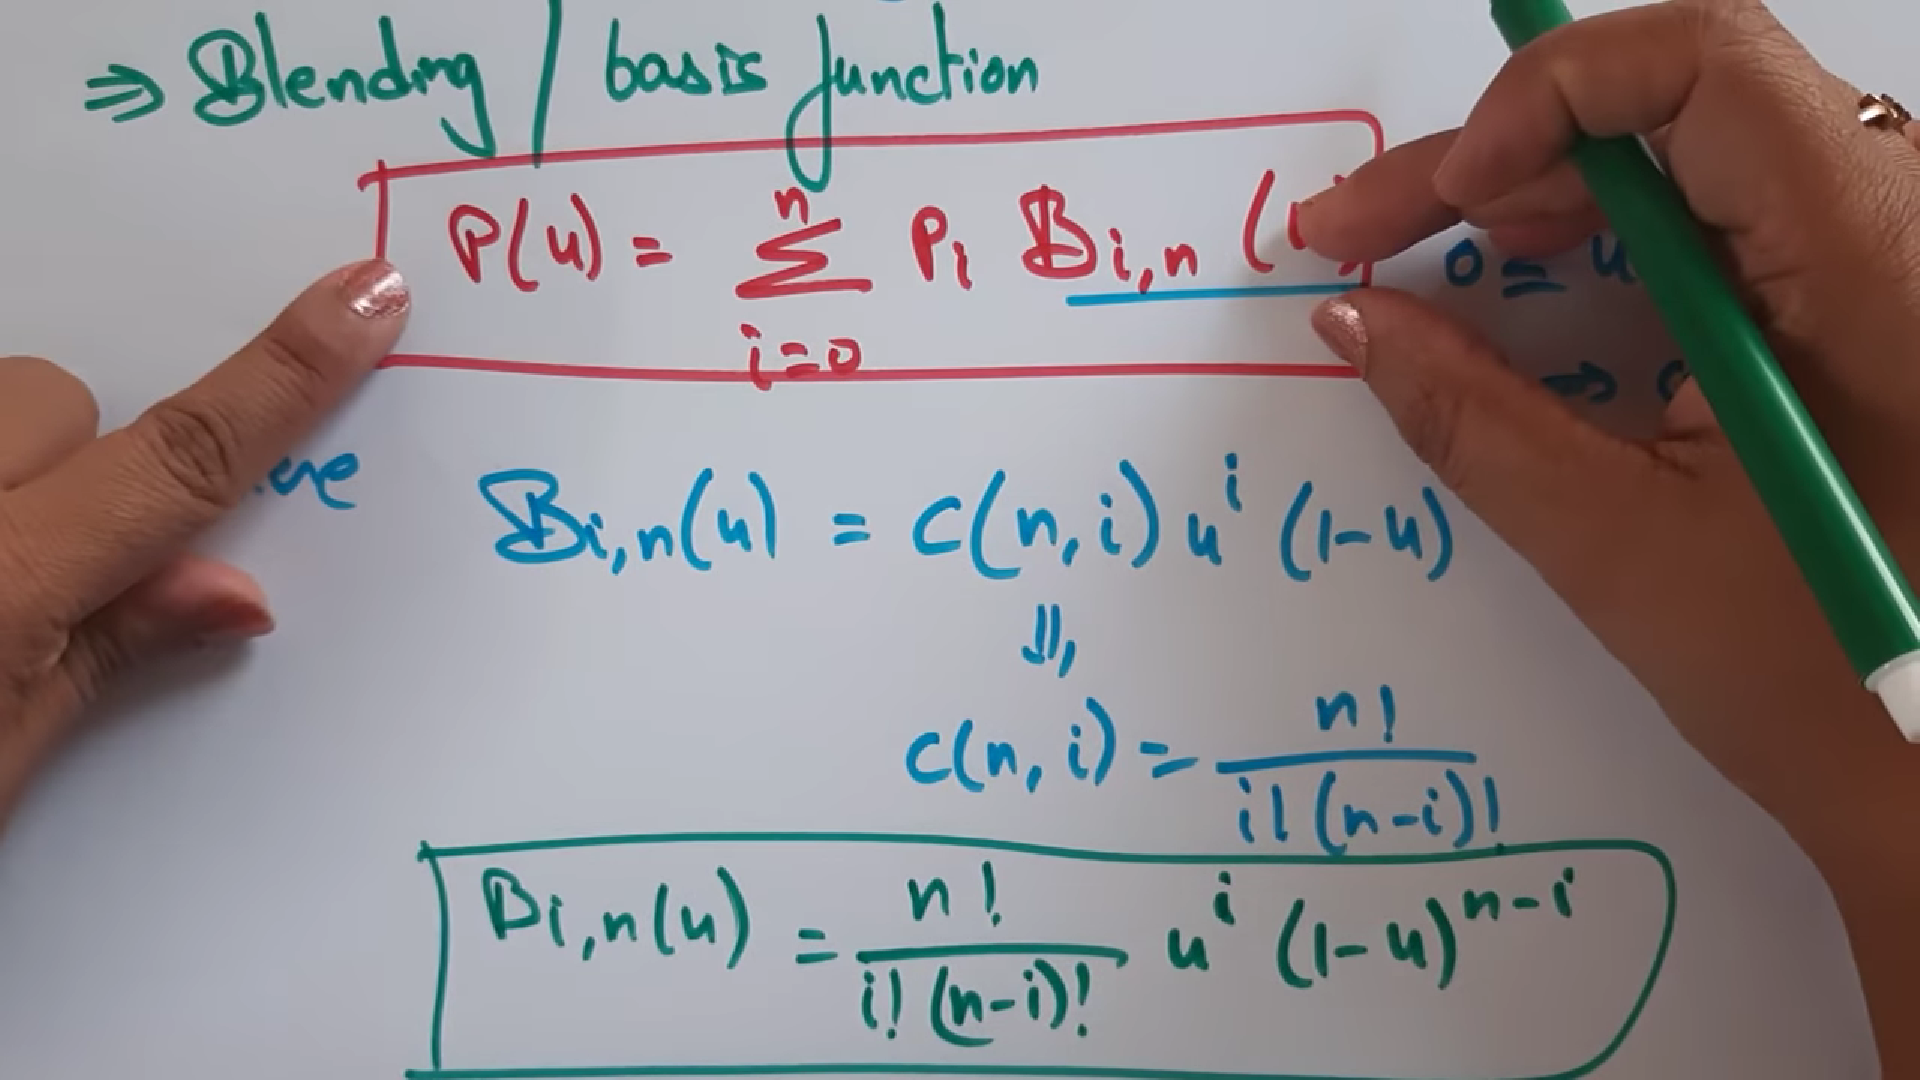 ⇒ Blending / basis function
P(u) = n Σ i=0 Pi Bi,n (
0 ≤ u
⇒
Bi,n(u) = C(n,i) u^i (1-u)
⇓
C(n,i) = n! / i!(n-i)!
Bi,n(u) = n! / i!(n-i)! u^i (1-u)^n-i